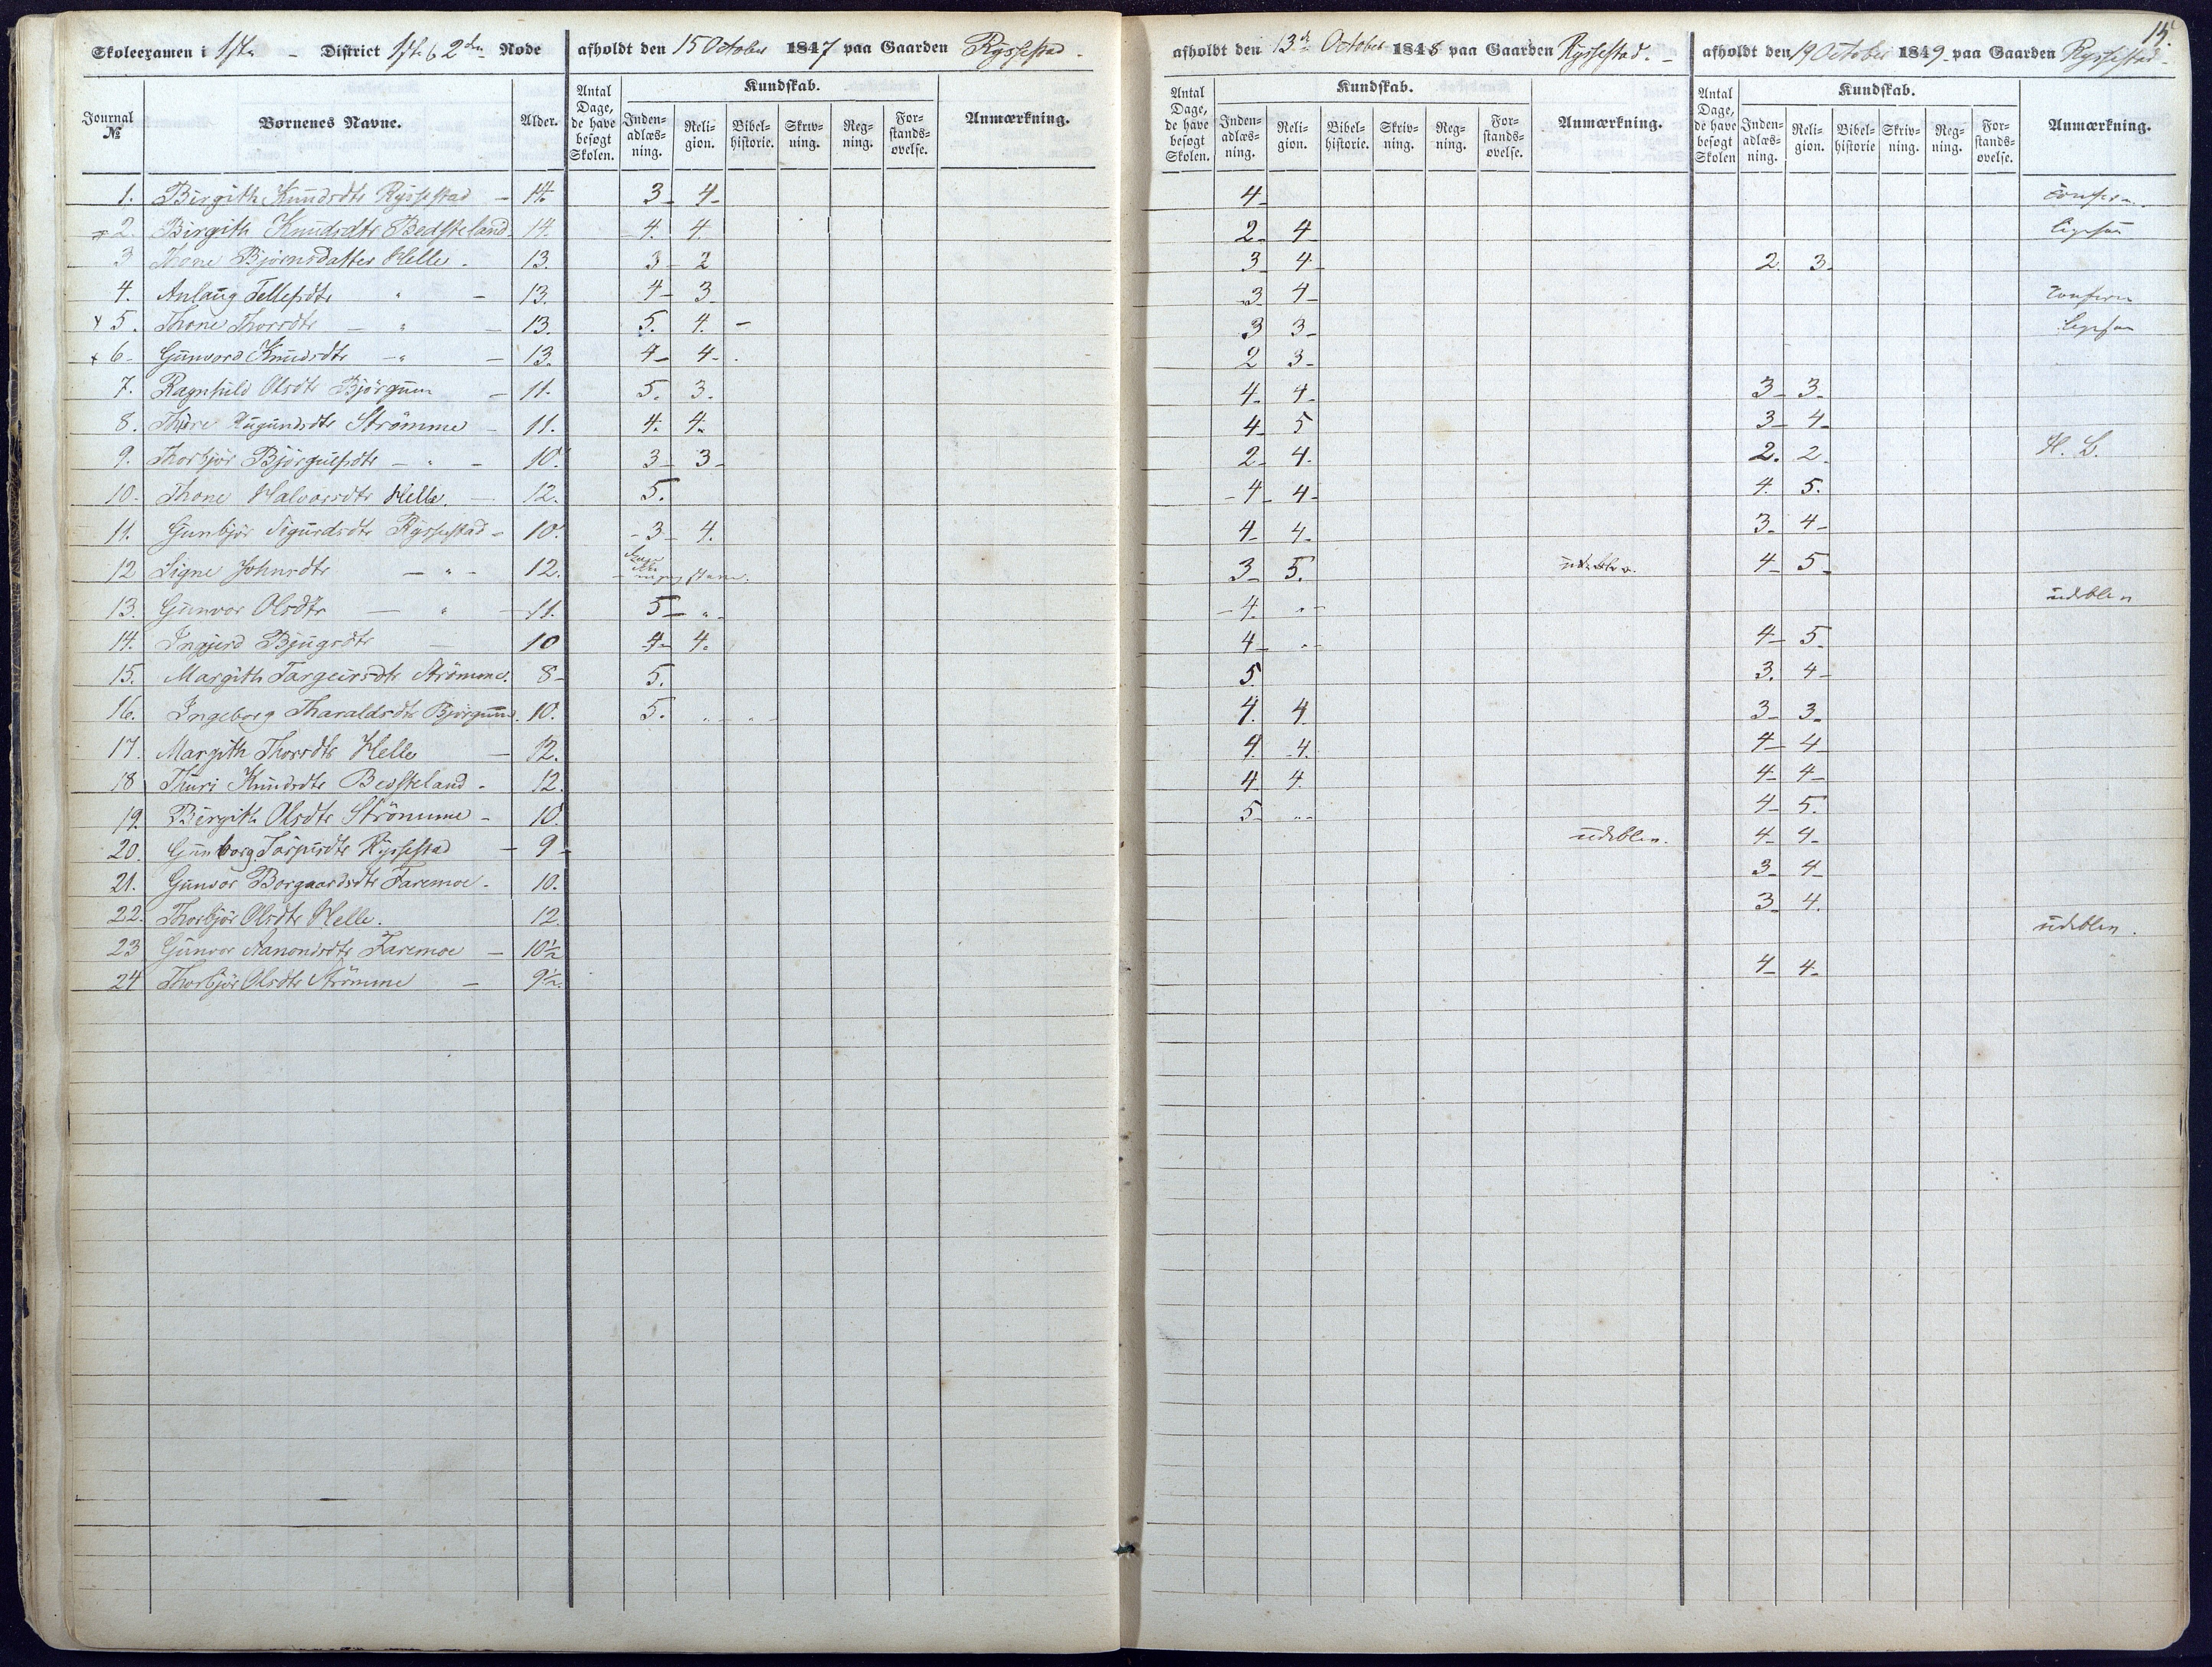 Skoleexamen i 1ste - District 1ste & 2den Rode afholdt den 15 October 1847 paa Gaarden Rysfestad.
afholdt den 13de October 1848 paa Gaarden Rysfestad. -
afholdt den 19 October 1849 paa Gaarden Rysfestad
15.
Journal № Børnenes Navne. Alder. Antal Dage, de have besøgt Skolen. Kundskab. Inden-adlæs-ning. Reli-gion. Bibel-historie. Skriv-ning. Reg-ning. For-stands-øvelse. Anmærkning.
Antal Dage, de have besøgt Skolen. Kundskab. Inden-adlæs-ning. Reli-gion. Bibel-historie. Skriv-ning. Reg-ning. For-stands-øvelse. Anmærkning.
Antal Dage, de have besøgt Skolen Kundskab. Inden-adlæs-ning. Reli-gion. Bibel-historie Skriv-ning. Reg-ning. For-stands-øvelse. Anmærkning.
1. Birgith Knudsdtr Rysfestad - 14. 3- 4- 4- confirm.
2. Birgith Knudsdtr Bedsteland- 14. 4. 4. 2- 4 ligesaa
3 Thone Bjørnsdatter Helle. 13. 3- 2 3 4- 2. 3-
4. Anlaug Tellefsdtr " - 13. 4- 3 3 4- confirm
5. Thone Thorsdtr - " - 13. 5. 4. - 3 3- ligesaa
6- Gunvord Knudsdtr -" - 13. 4- 4-. 2 3-
7. Ragnhild Olsdtr Bjørgum - 11. 5. 3. 4- 4- 3- 3-
8. Thore Augundsdtr Strømme - 11. 4. 4. 4- 5 3- 4-
9. Thorbjør Bjørgulfsdtr - " - 10. 3- 3- 2- 4. 2. 2. H. L.
10. Thone Halvorsdtr Helle. - 12. 5. -4- 4- 4. 5.
11. Gunbjør Sigurdsdtr Rysfestad - 10. -3- 4. 4- 4- 3- 4-
12 Signe Johnsdtr - " - 12. 3- 5. udeblev. 4- 5-
13. Gunvor Olsdtr - " - 11. 5- ". -4. "- udeblev
14. Ingjerd Bjugsdtr - 10 4- 4. 4- "- 4- 5.
15. Margith Targeirsdtr Strømme. 8- 5. 5 3. 4-
16. Ingeborg Tharaldsdtr Bjørgum. 10. 5. " " 4. 4 3- 3-
17. Margith Thorsdtr Helle - 12. 4. 4. 4- 4-
18 Thuri Knudsdtr Bedsteland. 12. 4- 4. 4- 4-
19. Birgith Olsdtr Strømme - 10. 5- "- 4- 5.
20. Gunborg Torjusdtr Rysfestad - 9- udeblev. 4- 4-
21. Gunvor Borgaardsdtr Faremoe. 10. 3- 4-
22. Thorbjør Olsdtr Helle. 12. 3- 4.
23 Gunvor Aanondsdtr Faremoe - 10½ udeblev.
24 Thorbjør Olsdtr Strømme - 9½. 4- 4-